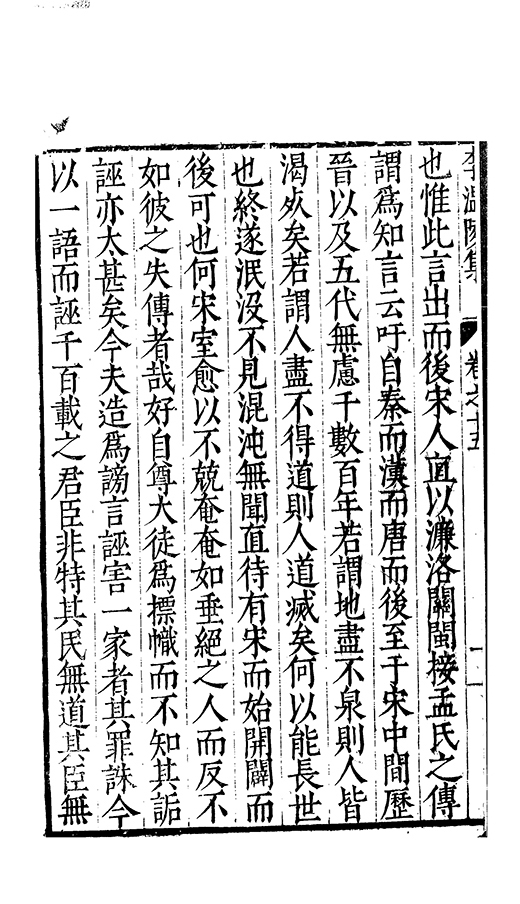 李溫陵集 卷之十五 二
也惟此言出而後宋人直以濂洛關閩接孟氏之傳
謂爲知言云吁自秦而漢而唐而後至于宋中間歷
晉以及五代無慮千數百年若謂地盡不泉則人皆
渴㱙矣若謂人盡不得道則人道㓕矣何以能長世
也終遂泯沒不見混沌無聞直待有宋而始開闢而
後可也何宋室愈以不兢奄奄如垂絕之人而反不
如彼之失傳者哉好自尊大徒爲標幟而不知其詬
誣亦太甚矣今夫造爲謗言誣害一家者其罪誅今
以一語而誣千百載之君臣非特其民無道其臣無